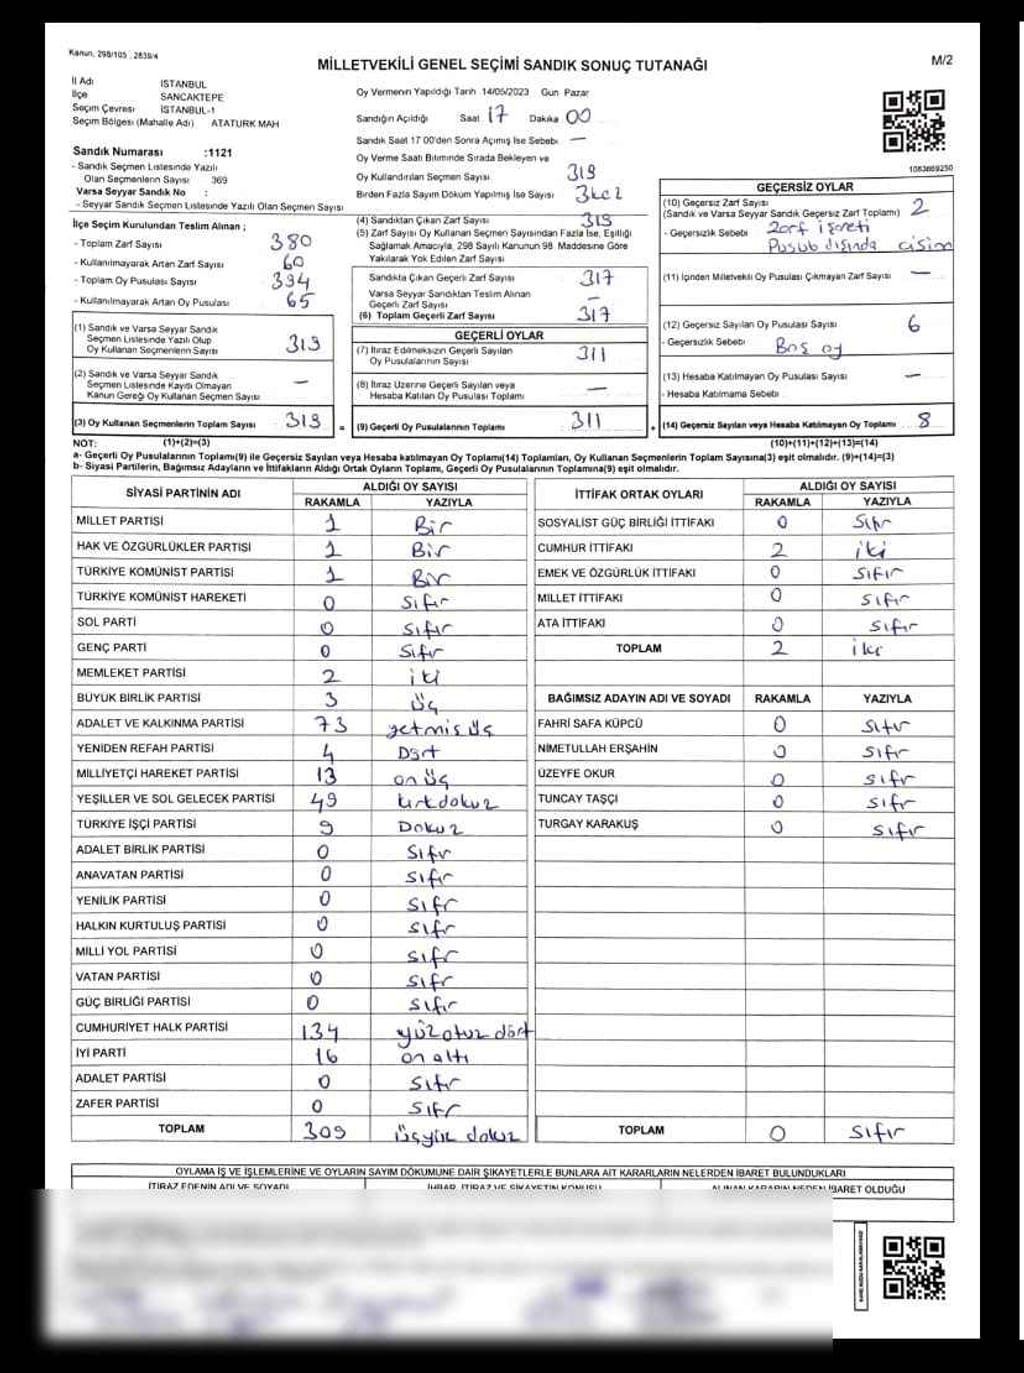 Kanun, 298/105 , 2839/4
MİLLETVEKİLİ GENEL SEÇİMİ SANDIK SONUÇ TUTANAĞI
M/2
İl Adı İSTANBUL
İlçe SANCAKTEPE
Seçim Çevresi İSTANBUL-1
Seçim Bölgesi (Mahalle Adı) ATATÜRK MAH
Oy Vermenin Yapıldığı Tarih 14/05/2023 Gün Pazar
Sandığın Açıldığı Saat 17 Dakika 00
Sandık Saat 17 00'den Sonra Açılmış İse Sebebi —
Oy Verme Saati Bitiminde Sırada Bekleyen ve
Oy Kullandırılan Seçmen Sayısı 319
Birden Fazla Sayım Döküm Yapılmış İse Sayısı
Sandık Numarası :1121
- Sandık Seçmen Listesinde Yazılı
Olan Seçmenlerin Sayısı 369
Varsa Seyyar Sandık No :
- Seyyar Sandık Seçmen Listesinde Yazılı Olan Seçmen Sayısı
1083869250
İlçe Seçim Kurulundan Teslim Alınan ;
- Toplam Zarf Sayısı 380
- Kullanılmayarak Artan Zarf Sayısı 60
- Toplam Oy Pusulası Sayısı 394
- Kullanılmayarak Artan Oy Pusulası 65
(1) Sandık ve Varsa Seyyar Sandık
Seçmen Listesinde Yazılı Olup
Oy Kullanan Seçmenlerin Sayısı 319
(2) Sandık ve Varsa Seyyar Sandık
Seçmen Listesinde Kaydı Olmayan
Kanun Gereği Oy Kullanan Seçmen Sayısı —
(3) Oy Kullanan Seçmenlerin Toplam Sayısı 319 =
(4) Sandıktan Çıkan Zarf Sayısı 319
(5) Zarf Sayısı Oy Kullanan Seçmen Sayısından Fazla İse, Eşitliği
Sağlamak Amacıyla, 298 Sayılı Kanunun 98 Maddesine Göre
Yakılarak Yok Edilen Zarf Sayısı
Sandıkta Çıkan Geçerli Zarf Sayısı 317
Varsa Seyyar Sandıktan Teslim Alınan
Geçerli Zarf Sayısı —
(6) Toplam Geçerli Zarf Sayısı 317
GEÇERLİ OYLAR
(7) İtiraz Edilmeksizin Geçerli Sayılan
Oy Pusulalarının Sayısı 311
(8) İtiraz Üzerine Geçerli Sayılan veya
Hesaba Katılan Oy Pusulası Toplamı —
(9) Geçerli Oy Pusulalarının Toplamı 311 +
GEÇERSİZ OYLAR
(10) Geçersiz Zarf Sayısı
(Sandık ve Varsa Seyyar Sandık Geçersiz Zarf Toplamı) 2
- Geçersizlik Sebebi Zarf işareti
Pusula dışında cisim
(11) İçinden Milletvekili Oy Pusulası Çıkmayan Zarf Sayısı —
(12) Geçersiz Sayılan Oy Pusulası Sayısı 6
- Geçersizlik Sebebi Boş oy
(13) Hesaba Katılmayan Oy Pusulası Sayısı —
- Hesaba Katılmama Sebebi
(14) Geçersiz Sayılan veya Hesaba Katılmayan Oy Toplamı 8
NOT: (1)+(2)=(3) (10)+(11)+(12)+(13)=(14)
a- Geçerli Oy Pusulalarının Toplamı(9) ile Geçersiz Sayılan veya Hesaba katılmayan Oy Toplamı(14) Toplamları, Oy Kullanan Seçmenlerin Toplam Sayısına(3) eşit olmalıdır. (9)+(14)=(3)
b- Siyasi Partilerin, Bağımsız Adayların ve İttifakların Aldığı Ortak Oyların Toplamı, Geçerli Oy Pusulalarının Toplamına(9) eşit olmalıdır.
SİYASİ PARTİNİN ADI ALDIĞI OY SAYISI
RAKAMLA YAZIYLA
MİLLET PARTİSİ 1 Bir
HAK VE ÖZGÜRLÜKLER PARTİSİ 1 Bir
TÜRKİYE KOMÜNİST PARTİSİ 1 Bir
TÜRKİYE KOMÜNİST HAREKETİ 0 Sıfır
SOL PARTİ 0 Sıfır
GENÇ PARTİ 0 Sıfır
MEMLEKET PARTİSİ 2 iki
BÜYÜK BİRLİK PARTİSİ 3 üç
ADALET VE KALKINMA PARTİSİ 73 yetmiş üç
YENİDEN REFAH PARTİSİ 4 Dört
MİLLİYETÇİ HAREKET PARTİSİ 13 on üç
YEŞİLLER VE SOL GELECEK PARTİSİ 49 kırkdokuz
TÜRKİYE İŞÇİ PARTİSİ 9 Dokuz
ADALET BİRLİK PARTİSİ 0 Sıfır
ANAVATAN PARTİSİ 0 Sıfır
YENİLİK PARTİSİ 0 Sıfır
HALKIN KURTULUŞ PARTİSİ 0 Sıfır
MİLLİ YOL PARTİSİ 0 Sıfır
VATAN PARTİSİ 0 Sıfır
GÜÇ BİRLİĞİ PARTİSİ 0 Sıfır
CUMHURİYET HALK PARTİSİ 134 yüz otuz dört
İYİ PARTİ 16 on altı
ADALET PARTİSİ 0 Sıfır
ZAFER PARTİSİ 0 Sıfır
TOPLAM 309 üçyüz dokuz
İTTİFAK ORTAK OYLARI ALDIĞI OY SAYISI
RAKAMLA YAZIYLA
SOSYALİST GÜÇ BİRLİĞİ İTTİFAKI 0 Sıfır
CUMHUR İTTİFAKI 2 iki
EMEK VE ÖZGÜRLÜK İTTİFAKI 0 Sıfır
MİLLET İTTİFAKI 0 Sıfır
ATA İTTİFAKI 0 Sıfır
TOPLAM 2 iki
BAĞIMSIZ ADAYIN ADI VE SOYADI RAKAMLA YAZIYLA
FAHRİ SAFA KÜPCÜ 0 Sıfır
NİMETULLAH ERŞAHİN 0 Sıfır
ÜZEYFE OKUR 0 Sıfır
TUNCAY TAŞÇI 0 Sıfır
TURGAY KARAKUŞ 0 Sıfır
TOPLAM 0 Sıfır
OYLAMA İŞ VE İŞLEMLERİNE VE OYLARIN SAYIM DÖKÜMÜNE DAİR ŞİKAYETLERLE BUNLARA AİT KARARLARIN NELERDEN İBARET BULUNDUKLARI
İTİRAZ EDENİN ADI VE SOYADI İHBAR, İTİRAZ VE ŞİKAYETİN KONUSU ALINAN KARARIN NEDEN İBARET OLDUĞU